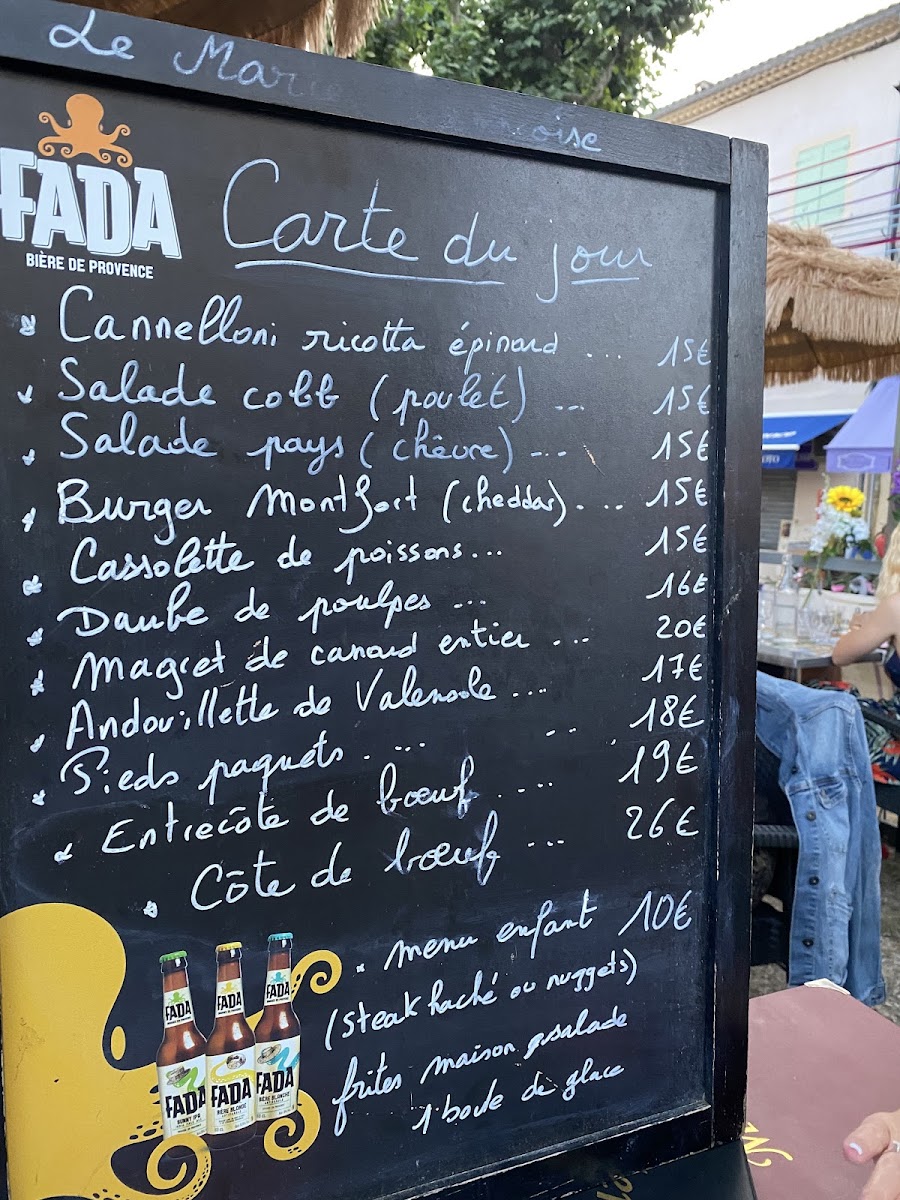 Le
oise
FADA
BIÈRE DE PROVENCE
Carte du jour
Cannelloni ricotta épinard ... 15€
Salade cobb (poulet) ... 15€
Salade pays (chêvre) ... 15€
Burger Montfort (cheddar) ... 15€
Cassolette de poissons... 15€
Daube de poulpes ... 16€
Magret de canard entier ... 20€
Andouillette de Valensole ... 17€
Pieds paquets ... 18€
Entrecôte de bœuf .... 19€
Côte de bœuf ... 26€
menu enfant 10€
(steak haché ou nuggets)
frites maison salade
1 boule de glace
FADA
FADA
FADA
FADA
SUNNY IPA
FADA
BIÈRE BLONDE
FADA
BIÈRE BLANCHE